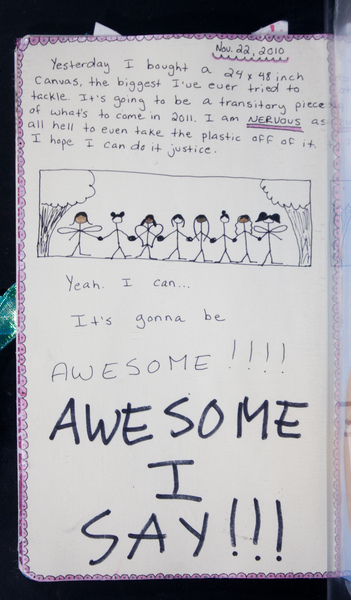 Nov. 22, 2010
Yesterday I bought a 24 x 48 inch
Canvas, the biggest I've ever tried to
tackle. It's going to be a transitory piece
of what's to come in 2011. I am NERVOUS as
all hell to even take the plastic off of it.
I hope I can do it justice.
Yeah. I can...
It's gonna be
AWESOME !!!!
AWESOME
I
SAY!!!